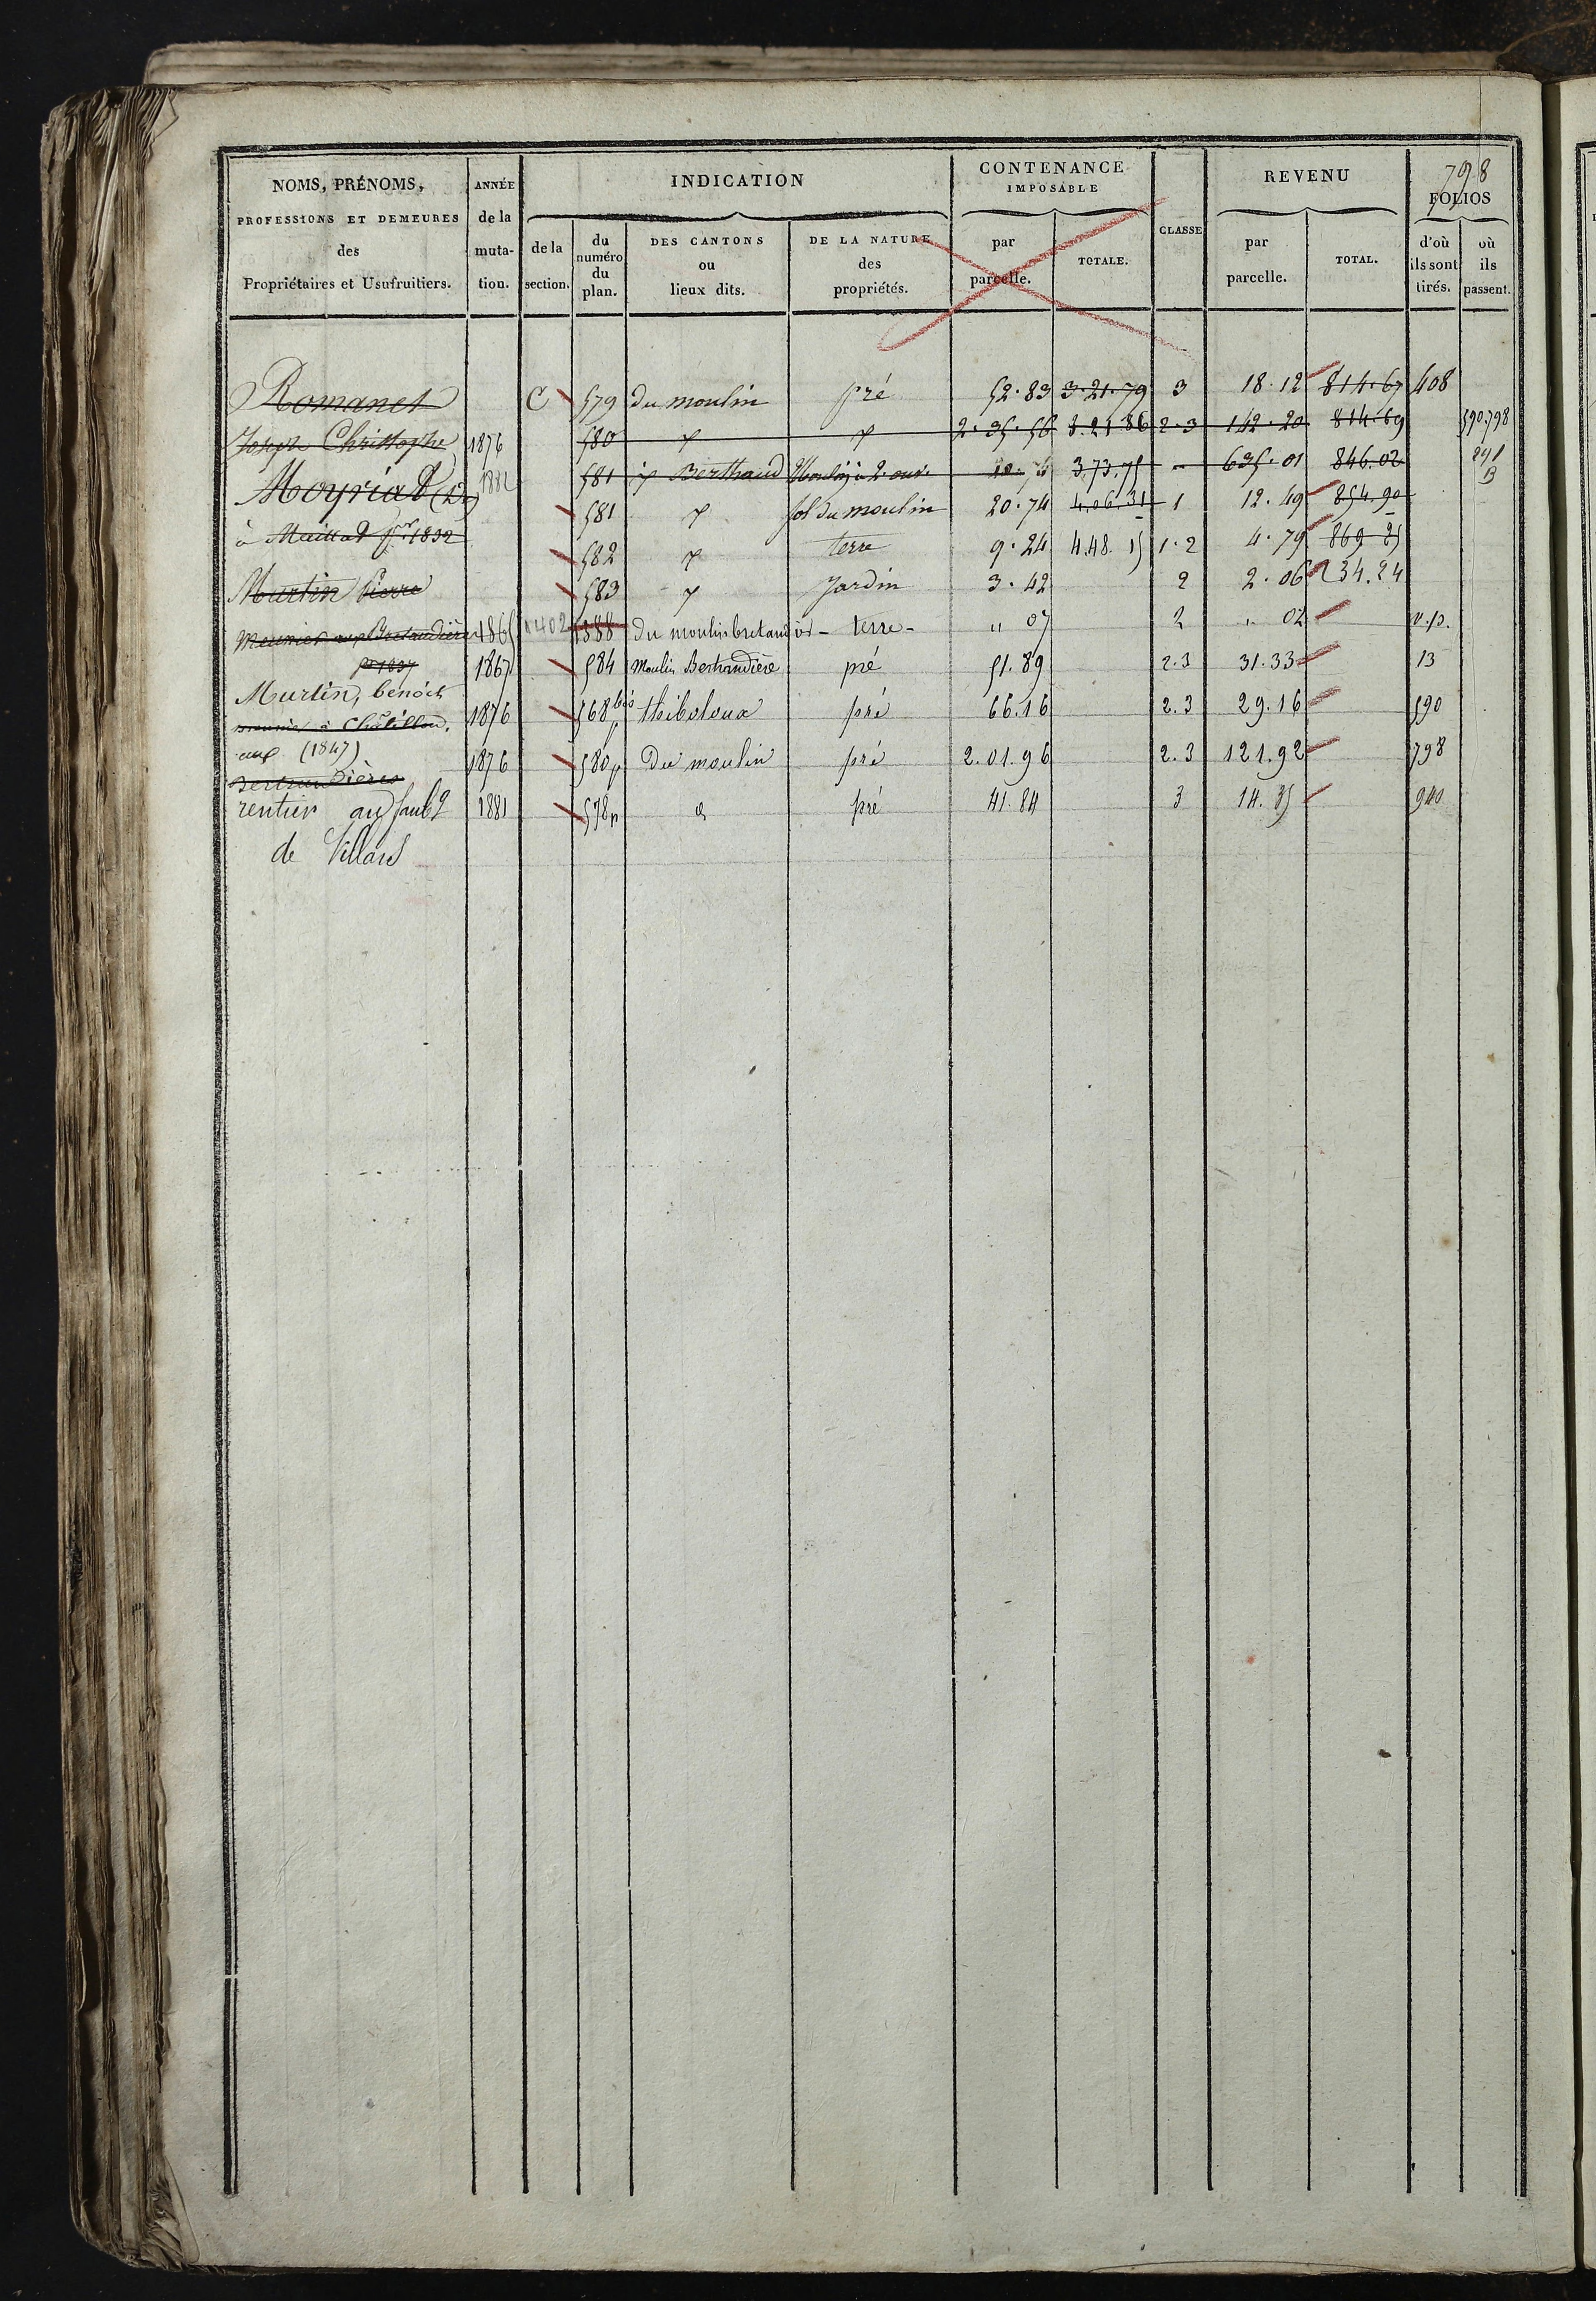 798
NOMS, PRÉNOMS, PROFESSIONS ET DEMEURES des Propriétaires et Usufruitiers.
ANNÉE de la muta-tion.
INDICATION
de la section.
du numéro du plan.
DES CANTONS ou lieux dits.
DE LA NATURE des propriétés.
CONTENANCE IMPOSABLE
par parcelle.
TOTALE.
CLASSE
REVENU
par parcelle.
TOTAL.
FOLIOS
d'où ils sont tirés.
où ils passent.
Romanet C 579 du moulin pré 52.83 3.21.79 3 18.12 814.67 408
Joseph Christophe 1876 580 2.35.56 3.21.86 2.3 142.20 814.69 590.798
Moyriat 1882 581 Berthaud 3.73.75 635.01 846.02 291 B
581 sol du moulin 20.74 4.06.31 1 12.49 854.90
à Maillat 1832 582 terre 9.24 4.48.15 1.2 4.79 869
Murtin Pierre 583 Jardin 3.42 2 2.06 234.24
Meunier aux Bretandière 1865 1402 1388 du moulin bretandièr - terre - " 07 2 " 02 n.p.
pr 1837 1867 584 Moulin Bertrandière pré 51.89 2.3 31.33 13
Murtin, benoit
meunier à Châtillon. 1876 568 bis p thiboloux pré 66.16 2.3 29.16 590
aux (1847) 1876 580p Du moulin pré 2.01.96 2.3 121.92 798
Bertrandières
rentier au faubg 1881 578p d pré 41.84 3 14.35 940
de Villars